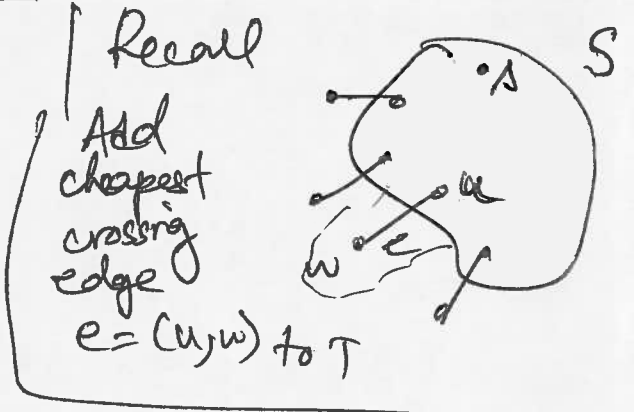 Recall
Add
cheapest
crossing
edge
e = (u,w) to T
S
s
u
e
w